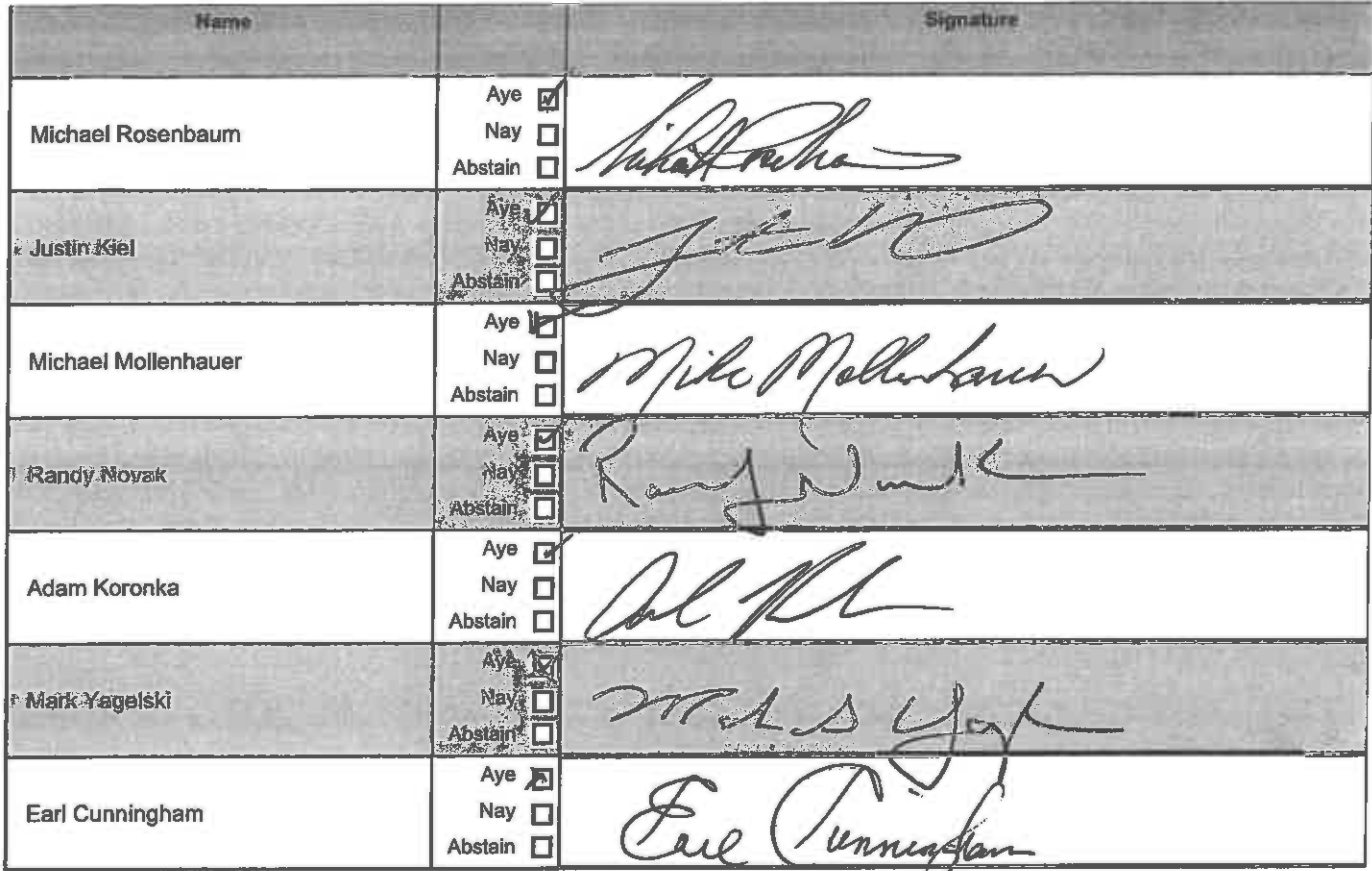 Name Signature
Michael Rosenbaum
Aye ☑
Nay ☐
Abstain ☐
Justin Kiel
Aye ☑
Nay ☐
Abstain ☐
Michael Mollenhauer
Aye ☑
Nay ☐
Abstain ☐
Mike Mollenhauer
Randy Novak
Aye ☑
Nay ☐
Abstain ☐
Randy Novak
Adam Koronka
Aye ☑
Nay ☐
Abstain ☐
Mark Yagelski
Aye ☑
Nay ☐
Abstain ☐
Earl Cunningham
Aye ☑
Nay ☐
Abstain ☐
Earl Cunningham